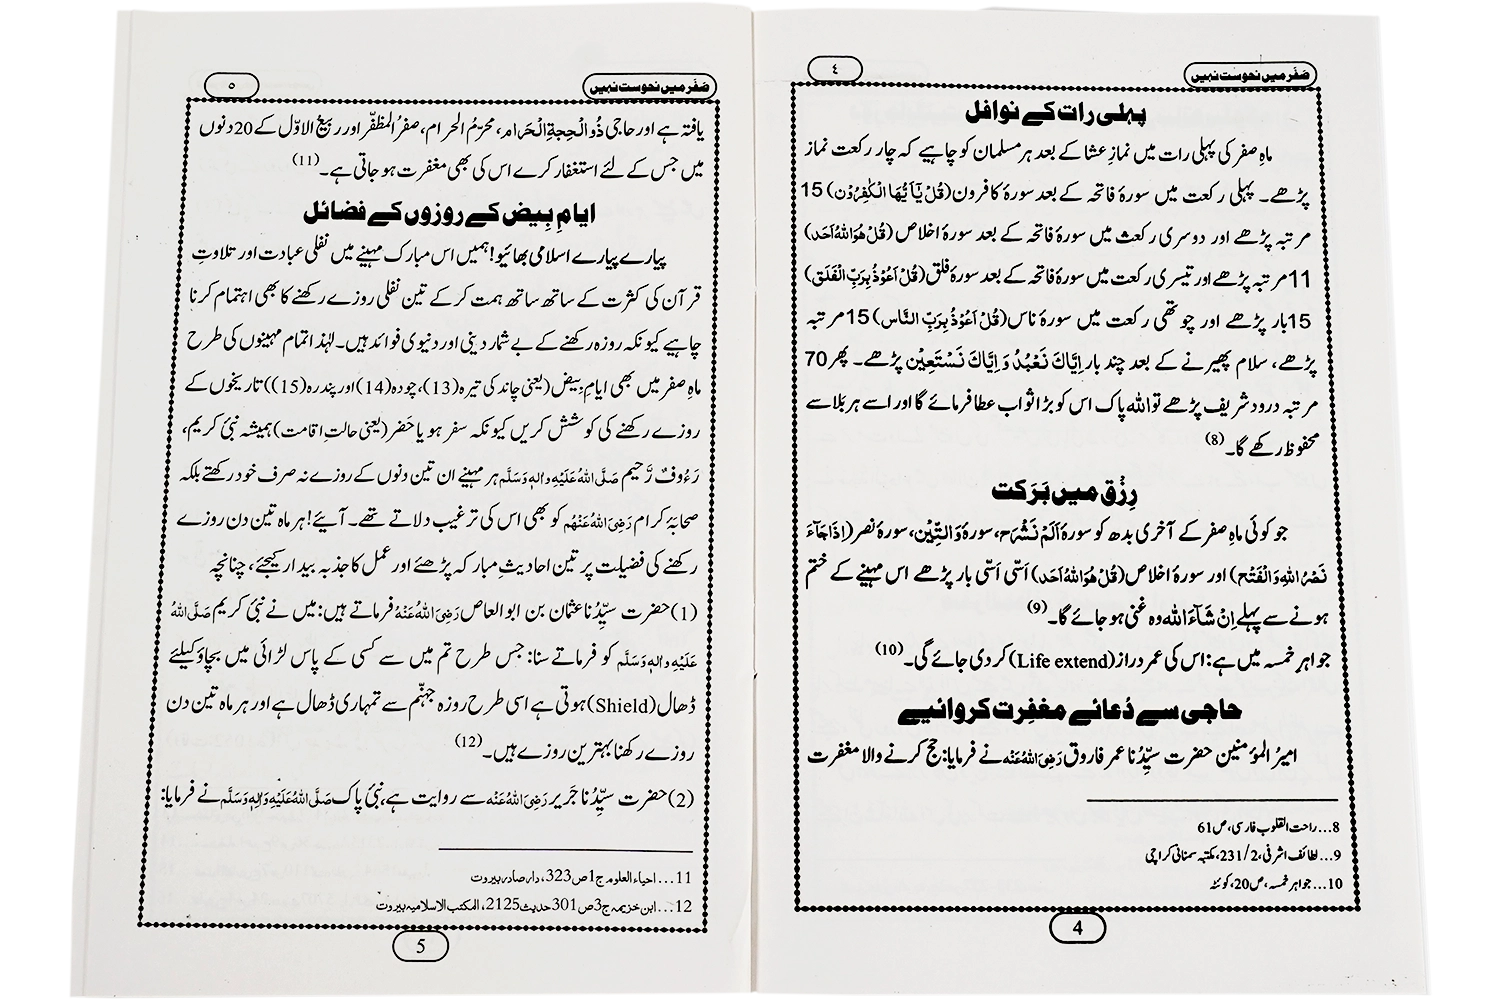 صَفَر میں نحوست نہیں
٤
پہلی رات کے نوافل
ماہِ صفر کی پہلی رات میں نمازِ عشا کے بعد ہر مسلمان کو چاہیے کہ چار رکعت نماز
پڑھے۔ پہلی رکعت میں سورۂ فاتحہ کے بعد سورۂ کافرون (قُلْ یٰۤاَیُّهَا الْکٰفِرُوْن) 15
مرتبہ پڑھے اور دوسری رکعث میں سورۂ فاتحہ کے بعد سورۂ اخلاص (قُلْ هُوَ اللهُ اَحَد)
11 مرتبہ پڑھے اور تیسری رکعت میں سورۂ فاتحہ کے بعد سورۂ فلق (قُلْ اَعُوْذُ بِرَبِّ الْفَلَق)
15 بار پڑھے اور چوتھی رکعت میں سورۂ ناس (قُلْ اَعُوْذُ بِرَبِّ النَّاس) 15 مرتبہ
پڑھے، سلام پھیرنے کے بعد چند بار اِیَّاكَ نَعْبُدُ وَ اِیَّاكَ نَسْتَعِیْن پڑھے۔ پھر 70
مرتبہ درود شریف پڑھے تو الله پاک اس کو بڑا ثواب عطا فرمائے گا اور اسے ہر بَلا سے
محفوظ رکھے گا۔ (8)
رِزْق میں بَرَکت
جو کوئی ماہِ صفر کے آخری بدھ کو سورۂ اَلَمْ نَشْرَح، سورۂ وَالتِّیْن، سورۂ نصر (اِذَا جَآءَ
نَصْرُ اللهِ وَالْفَتْح) اور سورۂ اخلاص (قُلْ هُوَ اللهُ اَحَد) اَسّی اَسّی بار پڑھے اس مہینے کے ختم
ہونے سے پہلے اِنْ شَآءَ الله وہ غنی ہو جائے گا۔ (9)
جواہرِ خمسہ میں ہے: اس کی عمر دراز (Life extend) کر دی جائے گی۔ (10)
حاجی سے دُعائے مغفِرت کروائیے
امیرُ المؤمنین حضرت سیِّدُنا عمر فاروق رَضِیَ اللهُ عَنْہ نے فرمایا: حج کرنے والا مغفرت
8... راحت القلوب فارسی، ص 61
9... لطائف اشرفی، 2/ 231، مکتبہ سمنانی کراچی
10... جواہر خمسہ، ص 20، کوئٹہ
4
صَفَر میں نحوست نہیں
٥
یافتہ ہے اور حاجی ذُو الْحِجۃِ الْحَرام، محرّمُ الحرام، صفرُ المظفّر اور ربیعُ الاوّل کے 20 دنوں
میں جس کے لئے استغفار کرے اس کی بھی مغفرت ہو جاتی ہے۔ (11)
ایامِ بِیض کے روزوں کے فضائل
پیارے پیارے اسلامی بھائیو! ہمیں اس مبارک مہینے میں نفلی عبادت اور تلاوتِ
قرآن کی کثرت کے ساتھ ساتھ ہمت کر کے تین نفلی روزے رکھنے کا بھی اہتمام کرنا
چاہیے کیونکہ روزہ رکھنے کے بے شمار دینی اور دنیوی فوائد ہیں۔ لہٰذا تمام مہینوں کی طرح
ماہِ صفر میں بھی ایامِ بِیض (یعنی چاند کی تیرہ (13)، چودہ (14) اور پندرہ (15)) تاریخوں کے
روزے رکھنے کی کوشش کریں کیونکہ سفر ہو یا حَضر (یعنی حالتِ اقامت) ہمیشہ نبیّ کریم،
رَءُوفٌ رَّحیم صَلَّی اللهُ عَلَیْہِ واٰلِہٖ وَسَلَّم ہر مہینے ان تین دنوں کے روزے نہ صرف خود رکھتے بلکہ
صحابۂ کرام رَضِیَ اللهُ عَنْہُم کو بھی اس کی ترغیب دلاتے تھے۔ آیئے! ہر ماہ تین دن روزے
رکھنے کی فضیلت پر تین احادیثِ مبارکہ پڑھئے اور عمل کا جذبہ بیدار کیجئے، چنانچہ
(1) حضرت سیِّدُنا عثمان بن ابو العاص رَضِیَ اللهُ عَنْہُ فرماتے ہیں: میں نے نبیّ کریم صَلَّی اللهُ
عَلَیْہِ واٰلِہٖ وَسَلَّم کو فرماتے سنا: جس طرح تم میں سے کسی کے پاس لڑائی میں بچاؤ کیلئے
ڈھال (Shield) ہوتی ہے اسی طرح روزہ جہنّم سے تمہاری ڈھال ہے اور ہر ماہ تین دن
روزے رکھنا بہترین روزے ہیں۔ (12)
(2) حضرت سیِّدُنا جَریر رَضِیَ اللهُ عَنْہ سے روایت ہے، نبیّ پاک صَلَّی اللهُ عَلَیْہِ وَاٰلِہٖ وَسَلَّم نے فرمایا:
11... احیاء العلوم، ج 1 ص 323، دار صادر بیروت
12... ابن خزیمہ ج 3 ص 301 حدیث 2125، المکتب الاسلامیہ بیروت
5